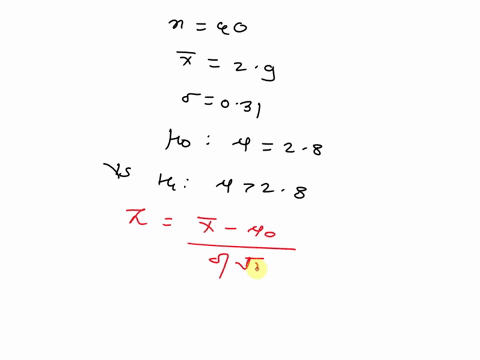 n = 40
x̄ = 2.9
σ = 0.31
H0 : μ = 2.8
Vs H1 : μ > 2.8
Z = x̄ - μ0
σ/√